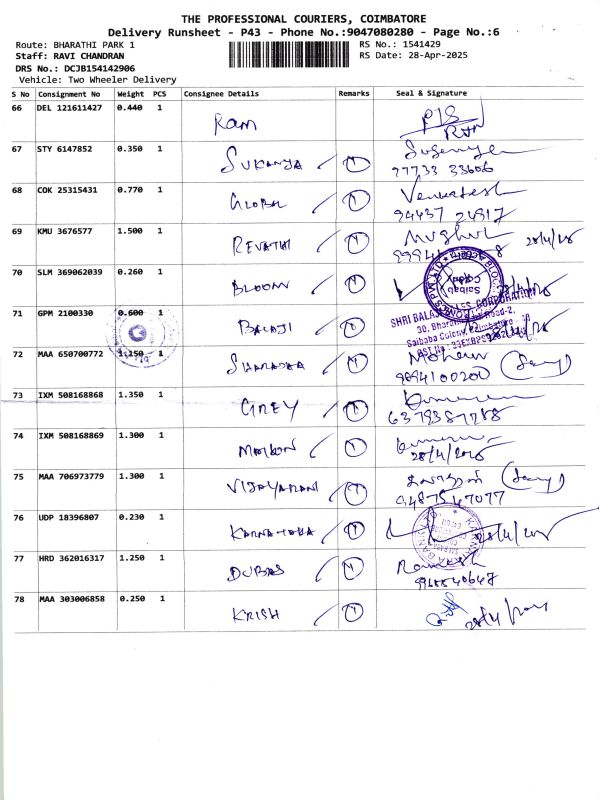 THE PROFESSIONAL COURIERS, COIMBATORE
Delivery Runsheet - P43 - Phone No.:9047080280 - Page No.:6
Route: BHARATHI PARK 1
RS No.: 1541429
Staff: RAVI CHANDRAN
RS Date: 28-Apr-2025
DRS No.: DCJB154142906
Vehicle: Two Wheeler Delivery
S No Consignment No Weight PCS Consignee Details Remarks Seal & Signature
66 DEL 121611427 0.440 1 Ram
67 STY 6147852 0.350 1 SUKANYA
97733 33606
68 COK 25315431 0.770 1 GLOBAL Venkatesh
94437 24917
69 KMU 3676577 1.500 1 REVATHI
28/4/25
70 SLM 369062039 0.260 1 BLOOM
71 GPM 2100330 0.600 1 BALAJI
SHRI BALA
Saibaba Colony, Coimbatore
72 MAA 650700772 1.150 1 SHARADHA
9894100200
73 IXM 508168868 1.350 1 GREY
6379387788
74 IXM 508168869 1.300 1
28/4/2025
75 MAA 706973779 1.300 1 VIJAYARANI
9487567077
76 UDP 18396807 0.230 1 KARNATAKA
28/4/25
77 HRD 362016317 1.250 1 DUBAS Ramesh
78 MAA 303006858 0.250 1 KRISH